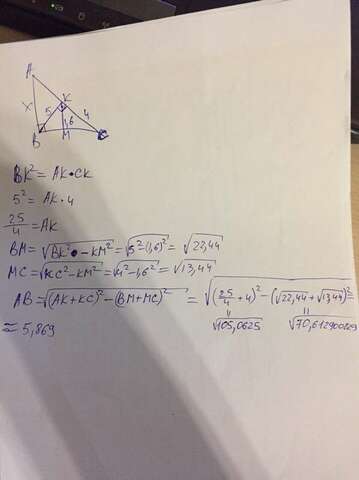 A
X
K
5
4
1,6
B
M
C
BK² = AK•CK
5² = AK•4
25/4 = AK
BM = √BK² - KM² = √5² - (1,6)² = √22,44
MC = √KC² - KM² = √4² - 1,6² = √13,44
AB = √(AK+KC)² - (BM+MC)² = √(25/4 + 4)² - (√22,44 + √13,44)² =
√105,0625 √70,612900229
≈ 5,869